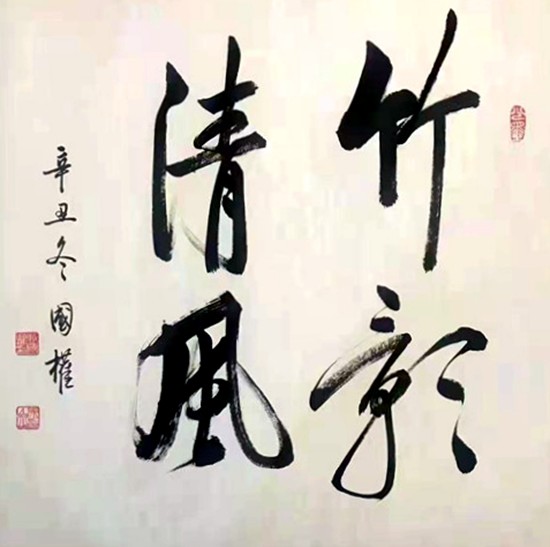 竹影
清風
辛丑冬國權